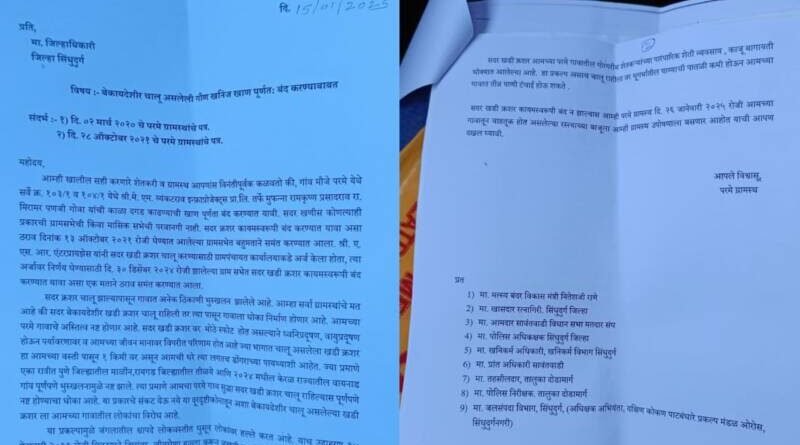 दि. 15/01/2025
प्रति,
मा. जिल्हाधिकारी
जिल्हा सिंधुदुर्ग
विषय :- बेकायदेशीर चालू असलेली गौण खनिज खाण पूर्णतः बंद करण्याबाबत
संदर्भ :- १) दि. ०२ मार्च २०२० चे परमे ग्रामस्थांचे पत्र.
२) दि. २८ ऑक्टोबर २०२१ चे परमे ग्रामस्थांचे पत्र.
महोदय,
आम्ही खालील सही करणारे शेतकरी व ग्रामस्थ आपणांस विनंतीपूर्वक कळवतो की, गांव मौजे परमे येथे
सर्वे क्र. १०३/१ व १०४/१ येथे श्री.मे. एम. व्यंकटराव इन्फ्राप्रोजेक्ट्स प्रा.लि. तर्फे मुफन्ना रामकृष्ण प्रसादराव रा.
मिरामर पणजी गोवा यांची काळा दगड काढण्याची खाण पूर्णता बंद करण्यात यावी. सदर खणीस कोणत्याही
प्रकारची ग्रामसभेची किंवा मासिक सभेची परवानगी नाही. सदर क्रशर कायमस्वरूपी बंद करण्यात यावा असा
ठराव दिनांक १३ ऑक्टोबर २०२१ रोजी घेण्यात आलेल्या ग्रामसभेत बहुमताने संमत करण्यात आला. श्री. ए.
एस. आर. एंटरप्रायझेस यांनी सदर खडी क्रशर चालू करण्यासाठी ग्रामपंचायत कार्यालयाकडे अर्ज केला होता, त्या
अर्जावर निर्णय घेण्यासाठी दि. ३० डिसेंबर २०२४ रोजी झालेल्या ग्राम सभेत सदर खडी क्रशर कायमस्वरूपी बंद
करण्यात यावा असा एक मताने ठराव संमत करण्यात आला.
सदर क्रशर चालू झाल्यापासून गावात अनेक ठिकाणी भुस्खलन झालेले आहे. आम्हा सर्वा ग्रामस्थांचे मत
आहे की सदर बेकायदेशीर खडी क्रशर चालू राहिली तर त्या पासून गावाला धोका निर्माण होणार आहे. आमच्या
परमे गावाचे अस्तित्व नष्ट होणार आहे. सदर खडी क्रशर वर मोठे स्फोट होत असल्याने ध्वनिप्रदूषण, वायुप्रदूषण
होऊन पर्यावरणावर व आमच्या जीवन मानावर विपरीत परिणाम होत आहे ज्या भागात चालू असलेला खडी क्रशर
हा आमच्या वस्ती पासून १ किमी वर असून आमची घरे त्या लगतच डोंगराच्या पायथ्याशी आहेत. ज्या प्रमाणे
एका रात्रीत पुणे जिल्ह्यातील माळीन,रायगड जिल्ह्यातील तळीये आणि २०२४ मधील केरळ राज्यातील वायनाड
गांव पूर्णपणे भुस्खलनामुळे नष्ट झाले. त्या प्रमाणे आमचा परमे गाव सुद्धा सदर खडी क्रशर चालू राहिल्यास पूर्णपणे
नष्ट होण्याचा धोका आहे. या प्रकारचे संकट येऊ नये या दूरदृष्टीकोनातून अशा बेकायदेशीर चालू असलेल्या खडी
क्रशर ला आमच्या गावातील लोकांचा विरोध आहे.
या प्रकल्पामुळे जंगलातील श्वापदे लोकवस्तीत घुसून लोकांवर हल्ले करत आहे. याच उदाहरण
सदर खडी क्रशर आमच्या परमे गावातील गोरगरीब शेतकऱ्यांच्या पारंपारिक शेती व्यवसाय , काजू बागायती
धोक्यात आलेल्या आहे. हा प्रकल्प असाच चालू राहिला तर भूगर्भातील पाण्याची पातळी कमी होऊन आमच्या
गावात तीव्र पाणी टंचाई होऊ शकते .
सदर खडी क्रशर कायमस्वरूपी बंद न झाल्यास आम्ही परमे ग्रामस्थ दि. २६ जानेवारी २०२५ रोजी आमच्या
गावातून वाहतूक होत असलेल्या रस्त्याच्या बाजूला आम्ही ग्रामस्थ उपोषणाला बसणार आहोत याची आपण
दखल घ्यावी.
आपले विश्वासू,
परमे ग्रामस्थ
प्रत
1) मा. मत्स्य बंदर विकास मंत्री नितेशजी राणे
2) मा. खासदार रत्नागिरी. सिंधुदुर्ग जिल्हा
3) मा. आमदार सावंतवाडी विधान सभा मतदार संघ
4) मा. पोलिस अधिक्षक सिंधुदुर्ग जिल्हा
5) मा. खनिकर्म अधिकारी, खनिकर्म विभाग सिंधुदुर्ग
6) मा. प्रांत अधिकारी सावंतवाडी
7) मा. तहसीलदार, तालुका दोडामार्ग
8) मा. पोलिस निरीक्षक, तालुका दोडामार्ग
9) मा. जलसंपदा विभाग, सिंधुदुर्ग, (अधिक्षक अभियंता, दक्षिण कोकण पाटबंधारे प्रकल्प मंडळ ओरोस,
सिंधुदुर्गनगरी)